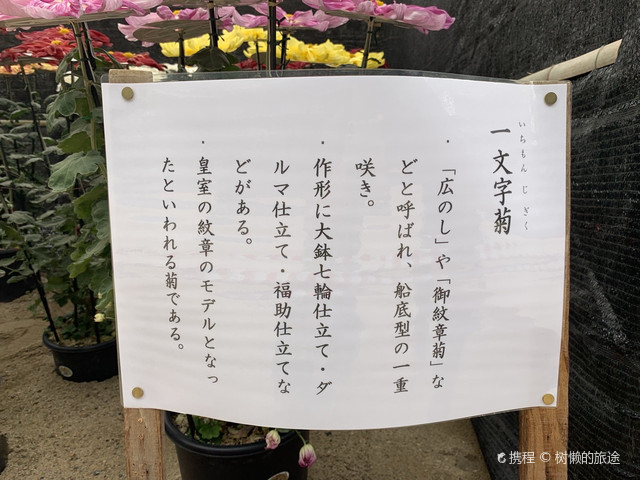 いちもんじぎく
一文字菊
・「広のし」や「御紋章菊」な
どと呼ばれ、船底型の一重
咲き。
・作形に大鉢七輪仕立て・ダ
ルマ仕立て・福助仕立てな
どがある。
・皇室の紋章のモデルとなっ
たといわれる菊である。
携程 © 树懒的旅途